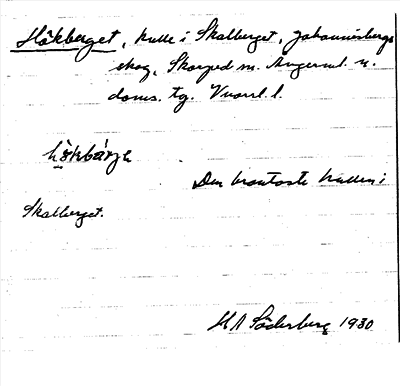 Hökberget, kulle i Skalberget, Johannisbergs
skog, Skorped sn. Ångerml. n.
doms. tg. Vnorrl. l.
hökbärje
Den brantaste kullen i
Skalberget.
H A Söderberg 1930